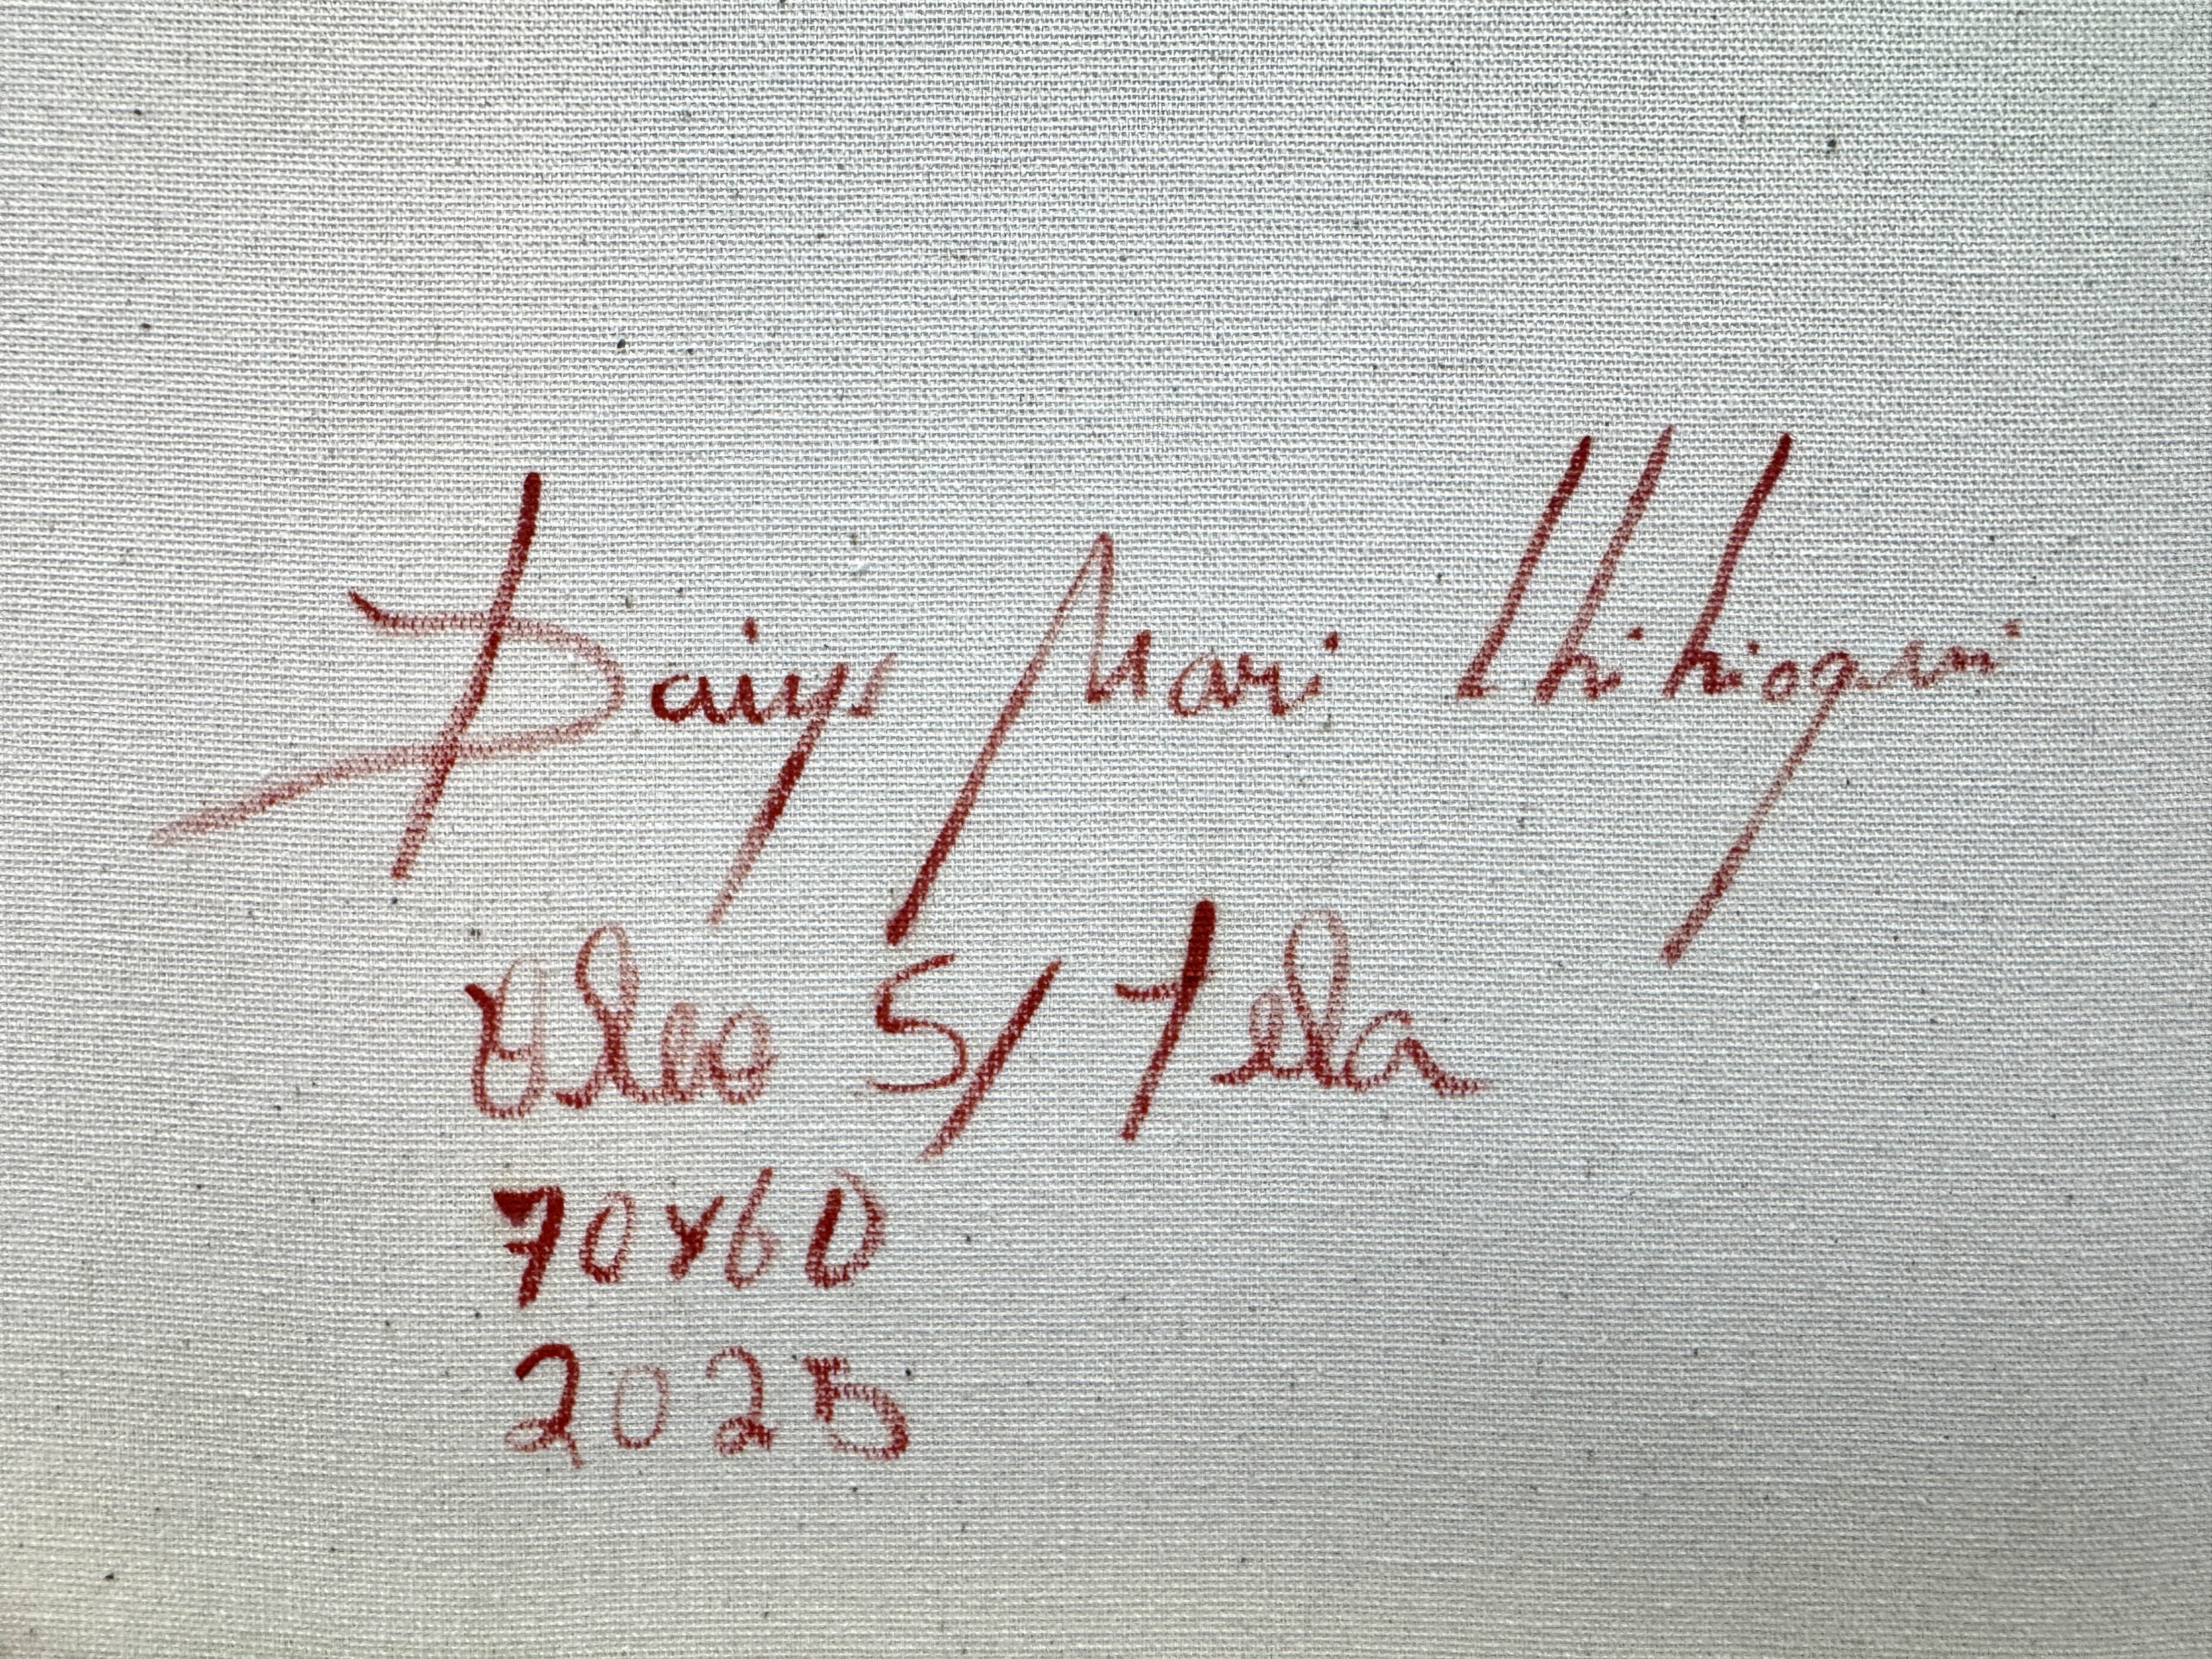 Daiys Mari
Oleo S/ Tela
70x60
2025